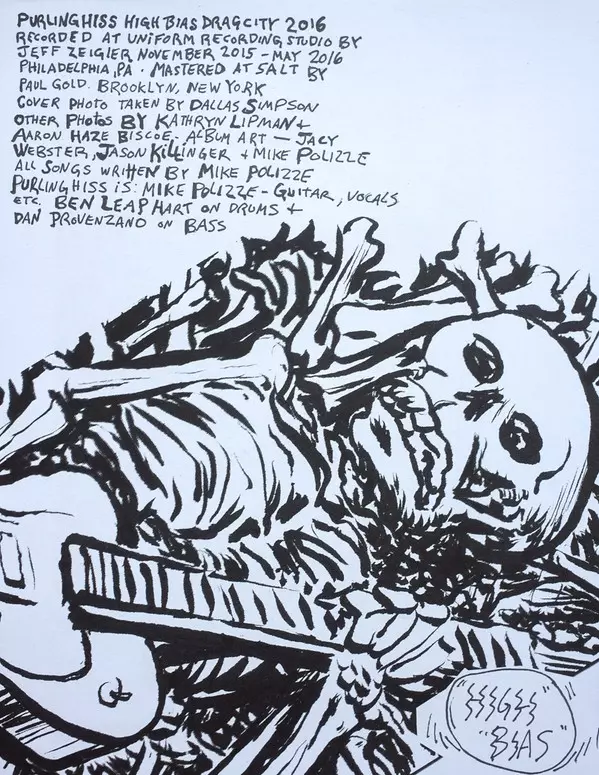 PURLING HISS HIGH BIAS DRAG CITY 2016
RECORDED AT UNIFORM RECORDING STUDIO BY
JEFF ZEIGLER NOVEMBER 2015 - MAY 2016
PHILADELPHIA, PA • MASTERED AT SALT BY
PAUL GOLD. BROOKLYN, NEW YORK
COVER PHOTO TAKEN BY DALLAS SIMPSON
OTHER PHOTOS BY KATHRYN LIPMAN +
AARON HAZE BISCOE - ALBUM ART — JACY
WEBSTER, JASON KILLINGER + MIKE POLIZZE
ALL SONGS WRITTEN BY MIKE POLIZZE
PURLING HISS IS: MIKE POLIZZE - GUITAR, VOCALS
ETC. BEN LEAPHART ON DRUMS +
DAN PROVENZANO ON BASS
"HIGH
"BIAS"